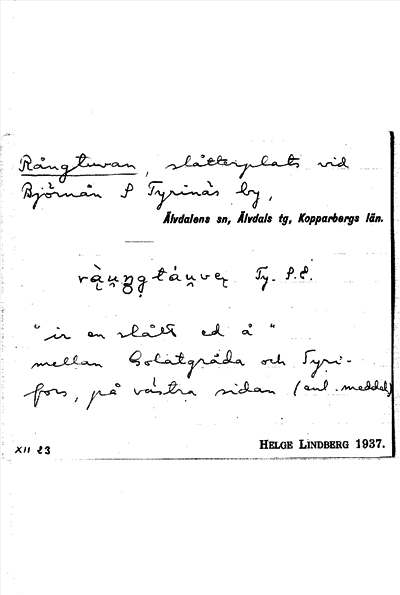 Rångtuvan, slåtterplats vid
Björnån S Tyrinäs by,
Älvdalens sn, Älvdals tg, Kopparbergs län.
Ty. S.E.
"ir en slått ed å"
mellan och Tyri-
fors, på västra sidan (enl. meddel)
XII 23
HELGE LINDBERG 1937.